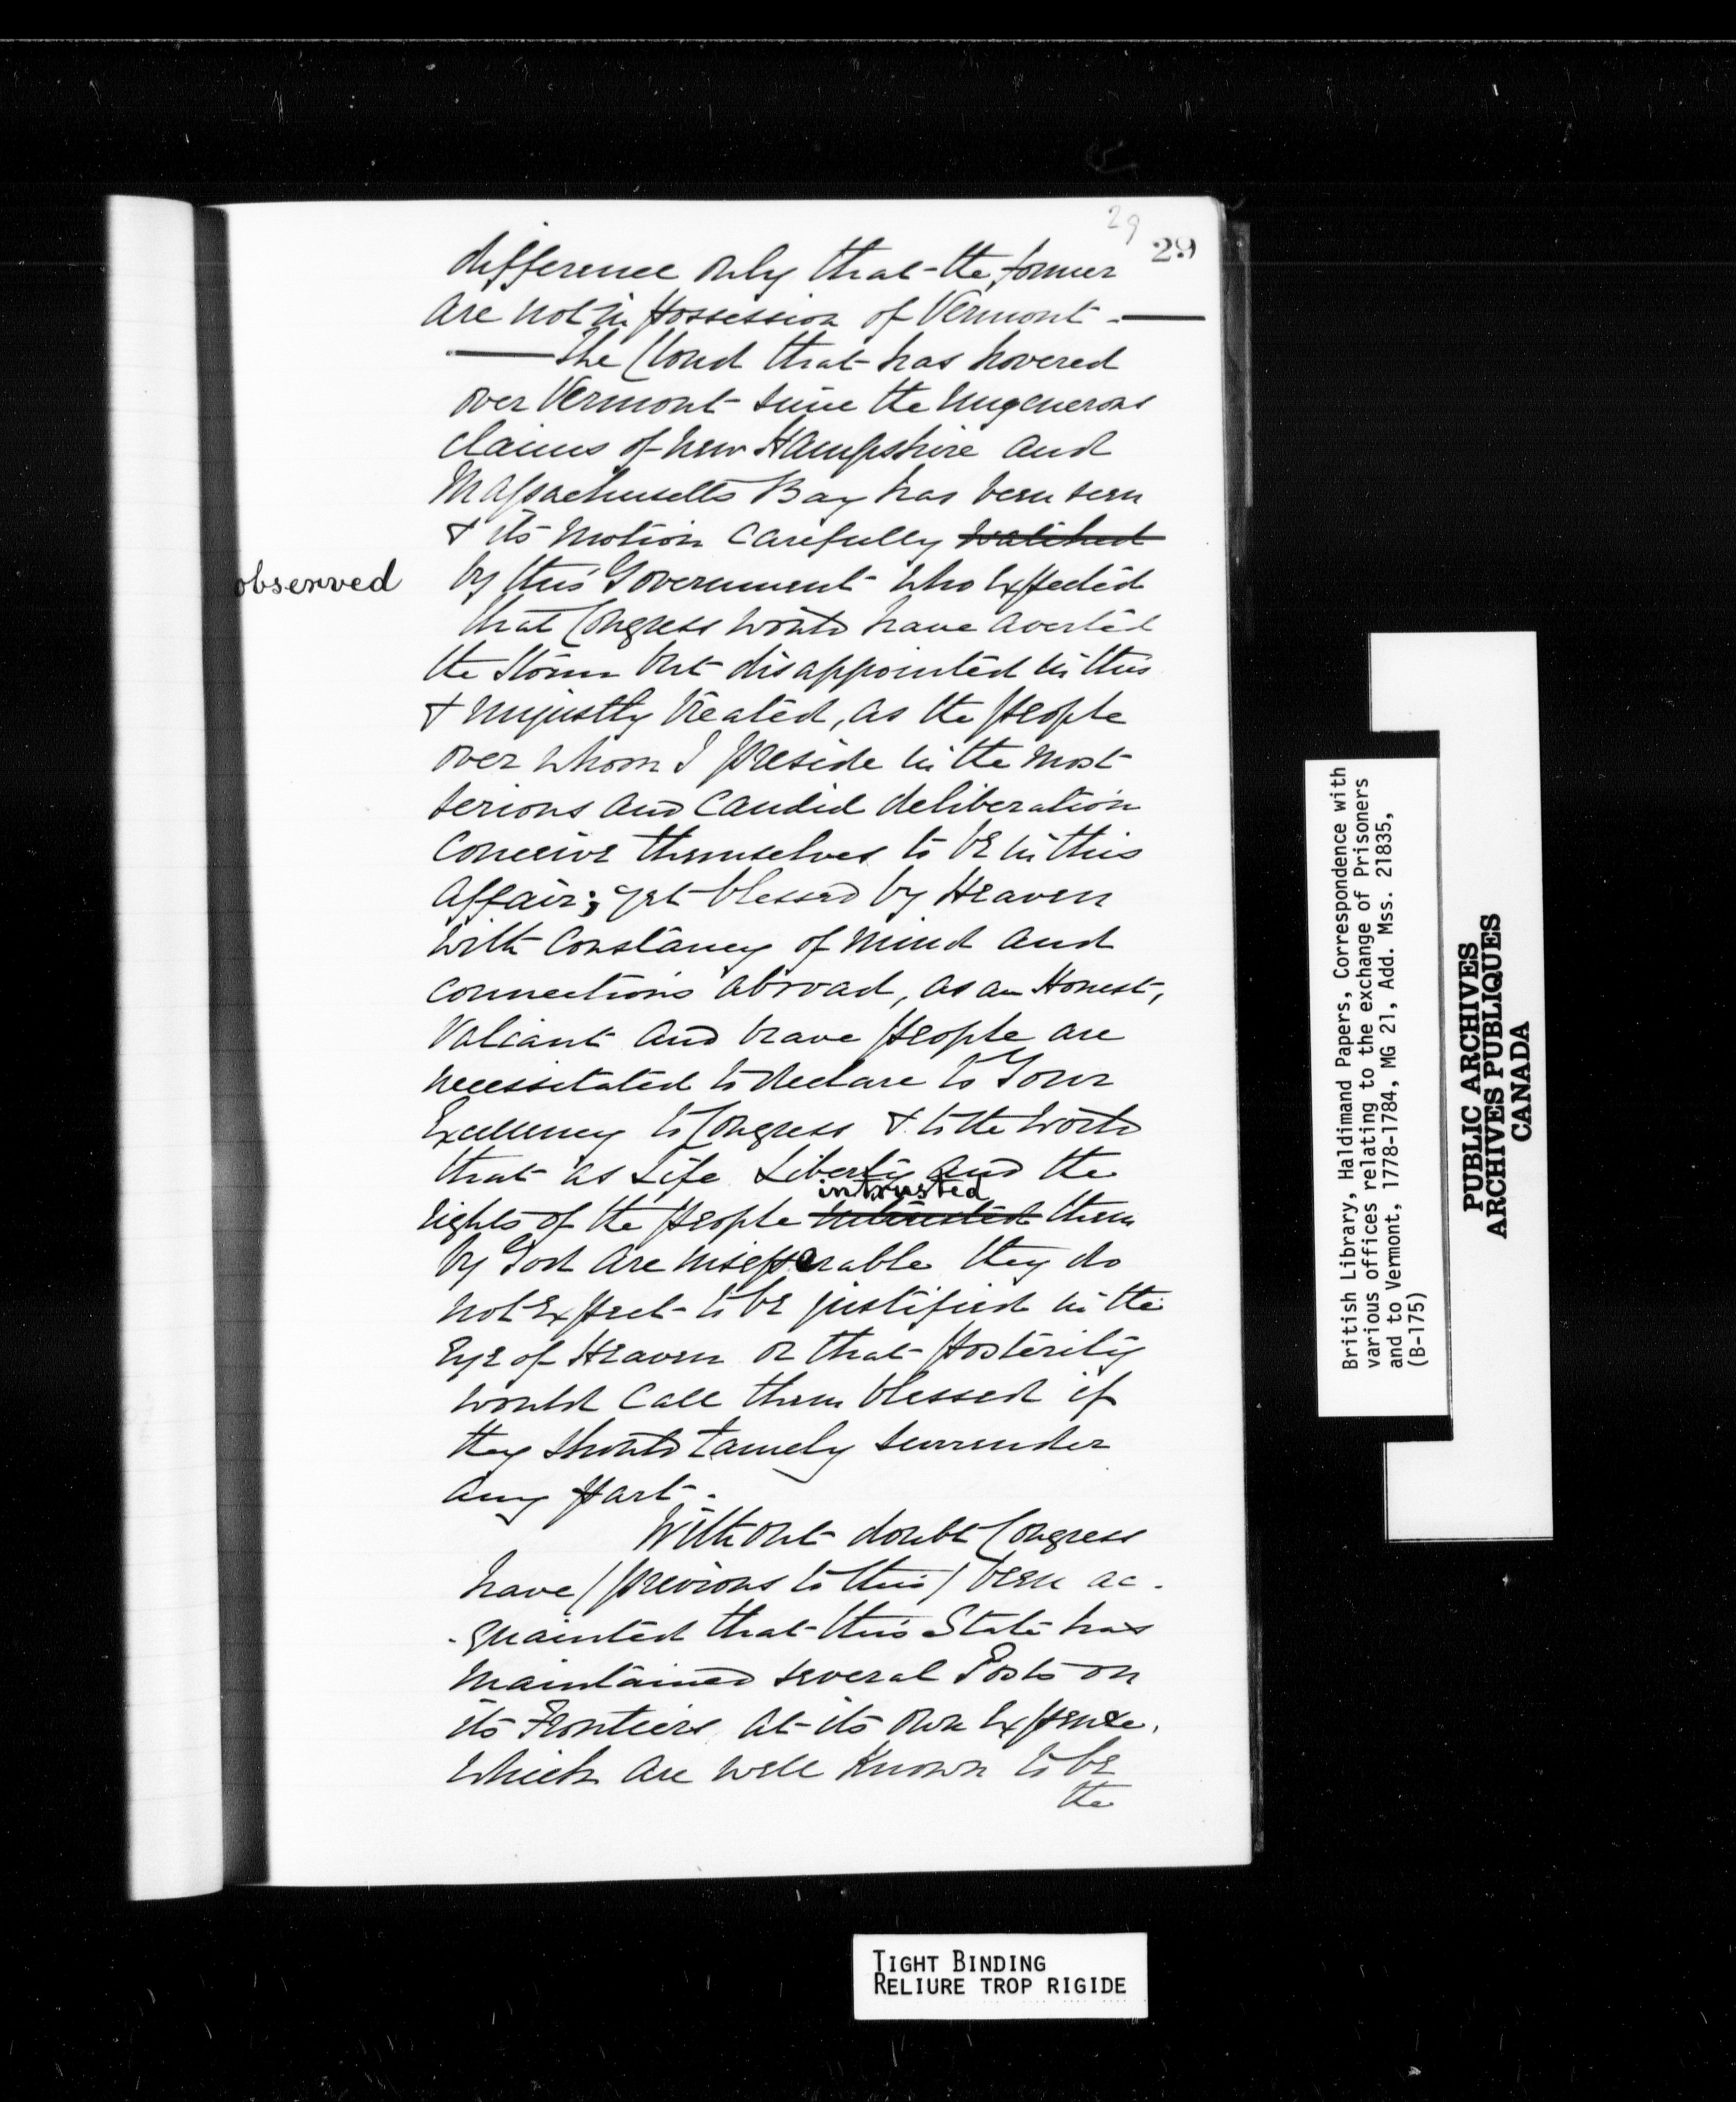 29
29
difference only that the former
are not in possession of Vermont. —
— The Cloud that has hovered
over Vermont since the ungenerous
claims of New Hampshire and
Massachusetts Bay has been seen
& its Motion Carefully watched
observed
by this Government who Expected
that Congress would have averted
the Storm but disappointed in this
& unjustly treated, as the people
over whom I preside in the most
serious and Candid deliberation
Conceive themselves to be in this
Affair; yet blessed by Heaven
with Constancy of Mind and
connections abroad, as an Honest,
Valiant and brave people are
necessitated to declare to Your
Excellency to Congress & to the World
that as Life Liberty and the
intrusted
rights of the people them
by God are inseperable they do
not Expect to be justified in the
Eye of Heaven or that posterity
would Call them blessed if
they should tamely surrender
any part.
Without doubt Congress
have (previous to this) been ac-
-quainted that this State has
maintained several Posts on
its Frontiers at its own Expense.
Which are well known to be
the
British Library, Haldimand Papers, Correspondence with
various offices relating to the exchange of Prisoners
and to Vermont, 1778-1784, MG 21, Add. Mss. 21835,
(B-175)
PUBLIC ARCHIVES
ARCHIVES PUBLIQUES
CANADA
TIGHT BINDING
RELIURE TROP RIGIDE